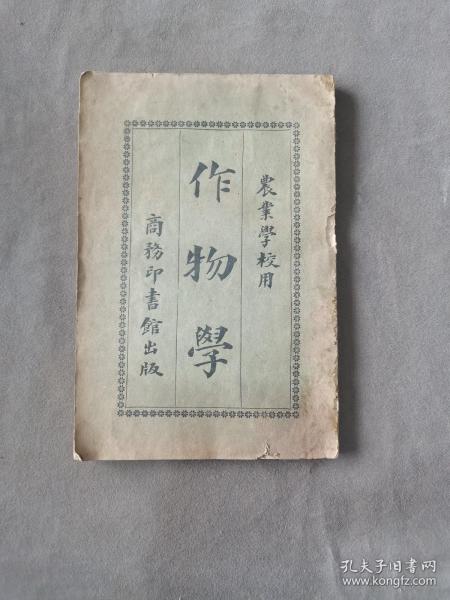 農業學校用
作物學
商務印書館出版
孔夫子旧书网
www.kongfz.com